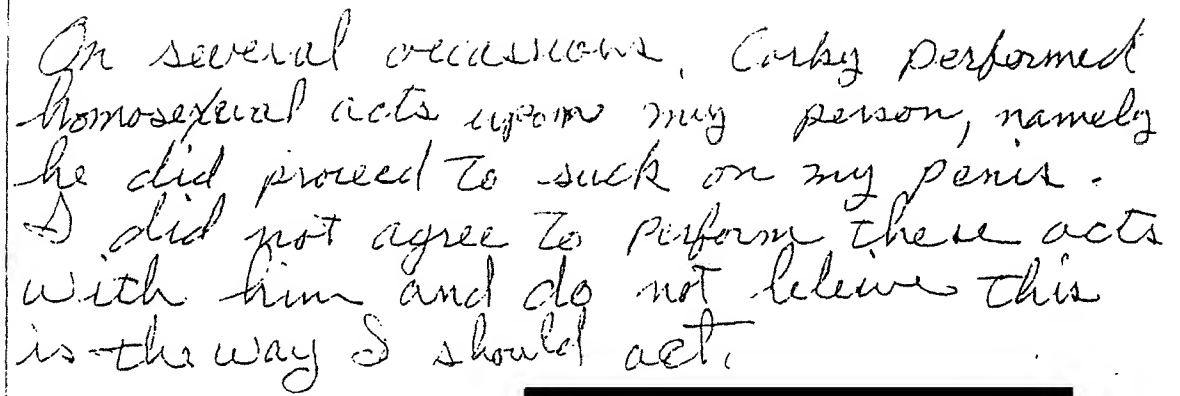 On several occassions, Corky performed
homosexual acts upon my person, namely
he did proceed to suck on my penis.
I did not agree to perform these acts
with him and do not beleive this
is the way I should act.